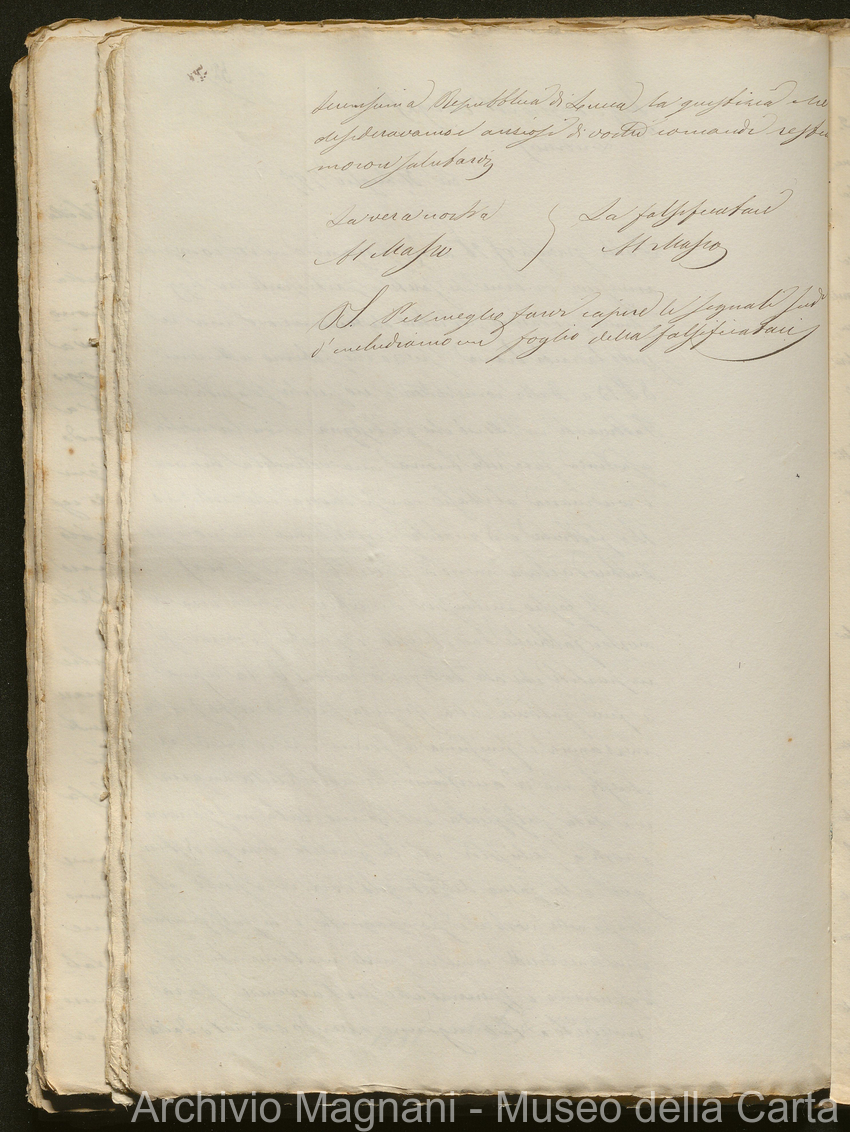 serenissima Repubblica di Lucca la giustizia che
desideravamo ansiosi di vostri comandi restia
mo con salutarvi
La vera nostra
Al Masso
La falsificata è
Al Masso
P.S. Per meglio farvi capire le segnale
d'includiamo un foglio della falsificata
Archivio Magnani - Museo della Carta